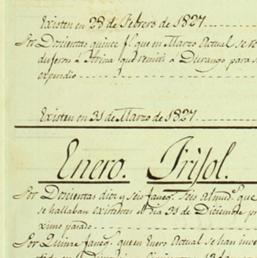 Existen en 28 de Febrero de 1827.
Por Doscientas quince f.s que en Marzo Actual se re
dujeron á Harina que remití á Durango para su
expendio
Existen en 31 de Marzo de 1827.
Enero. Frisol.
Por Doscientas diez y seis faneg.s seis almud.s que
se hallaban existentes el dia 31 de Diciembre pro
ximo pasado
Por Quince faneg.s que en Enero Actual se han inve